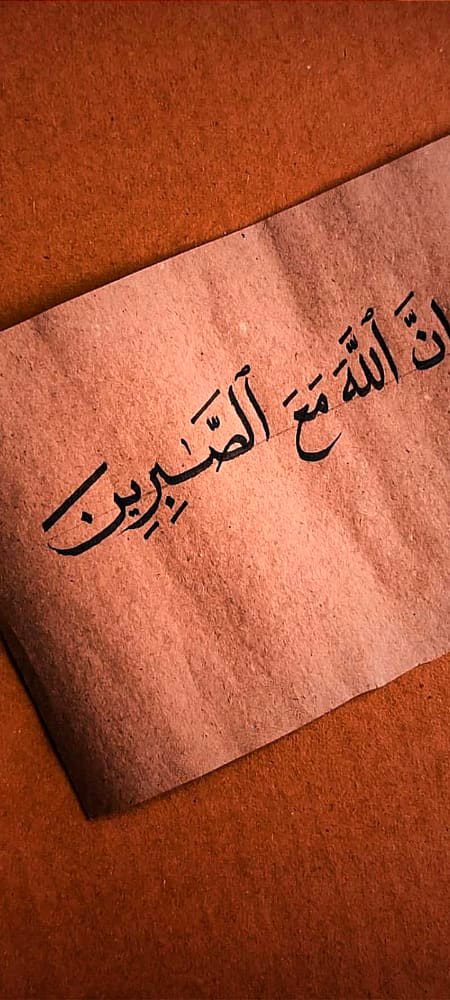 إنَّ ٱللَّهَ مَعَ ٱلصَّـٰبِرِين